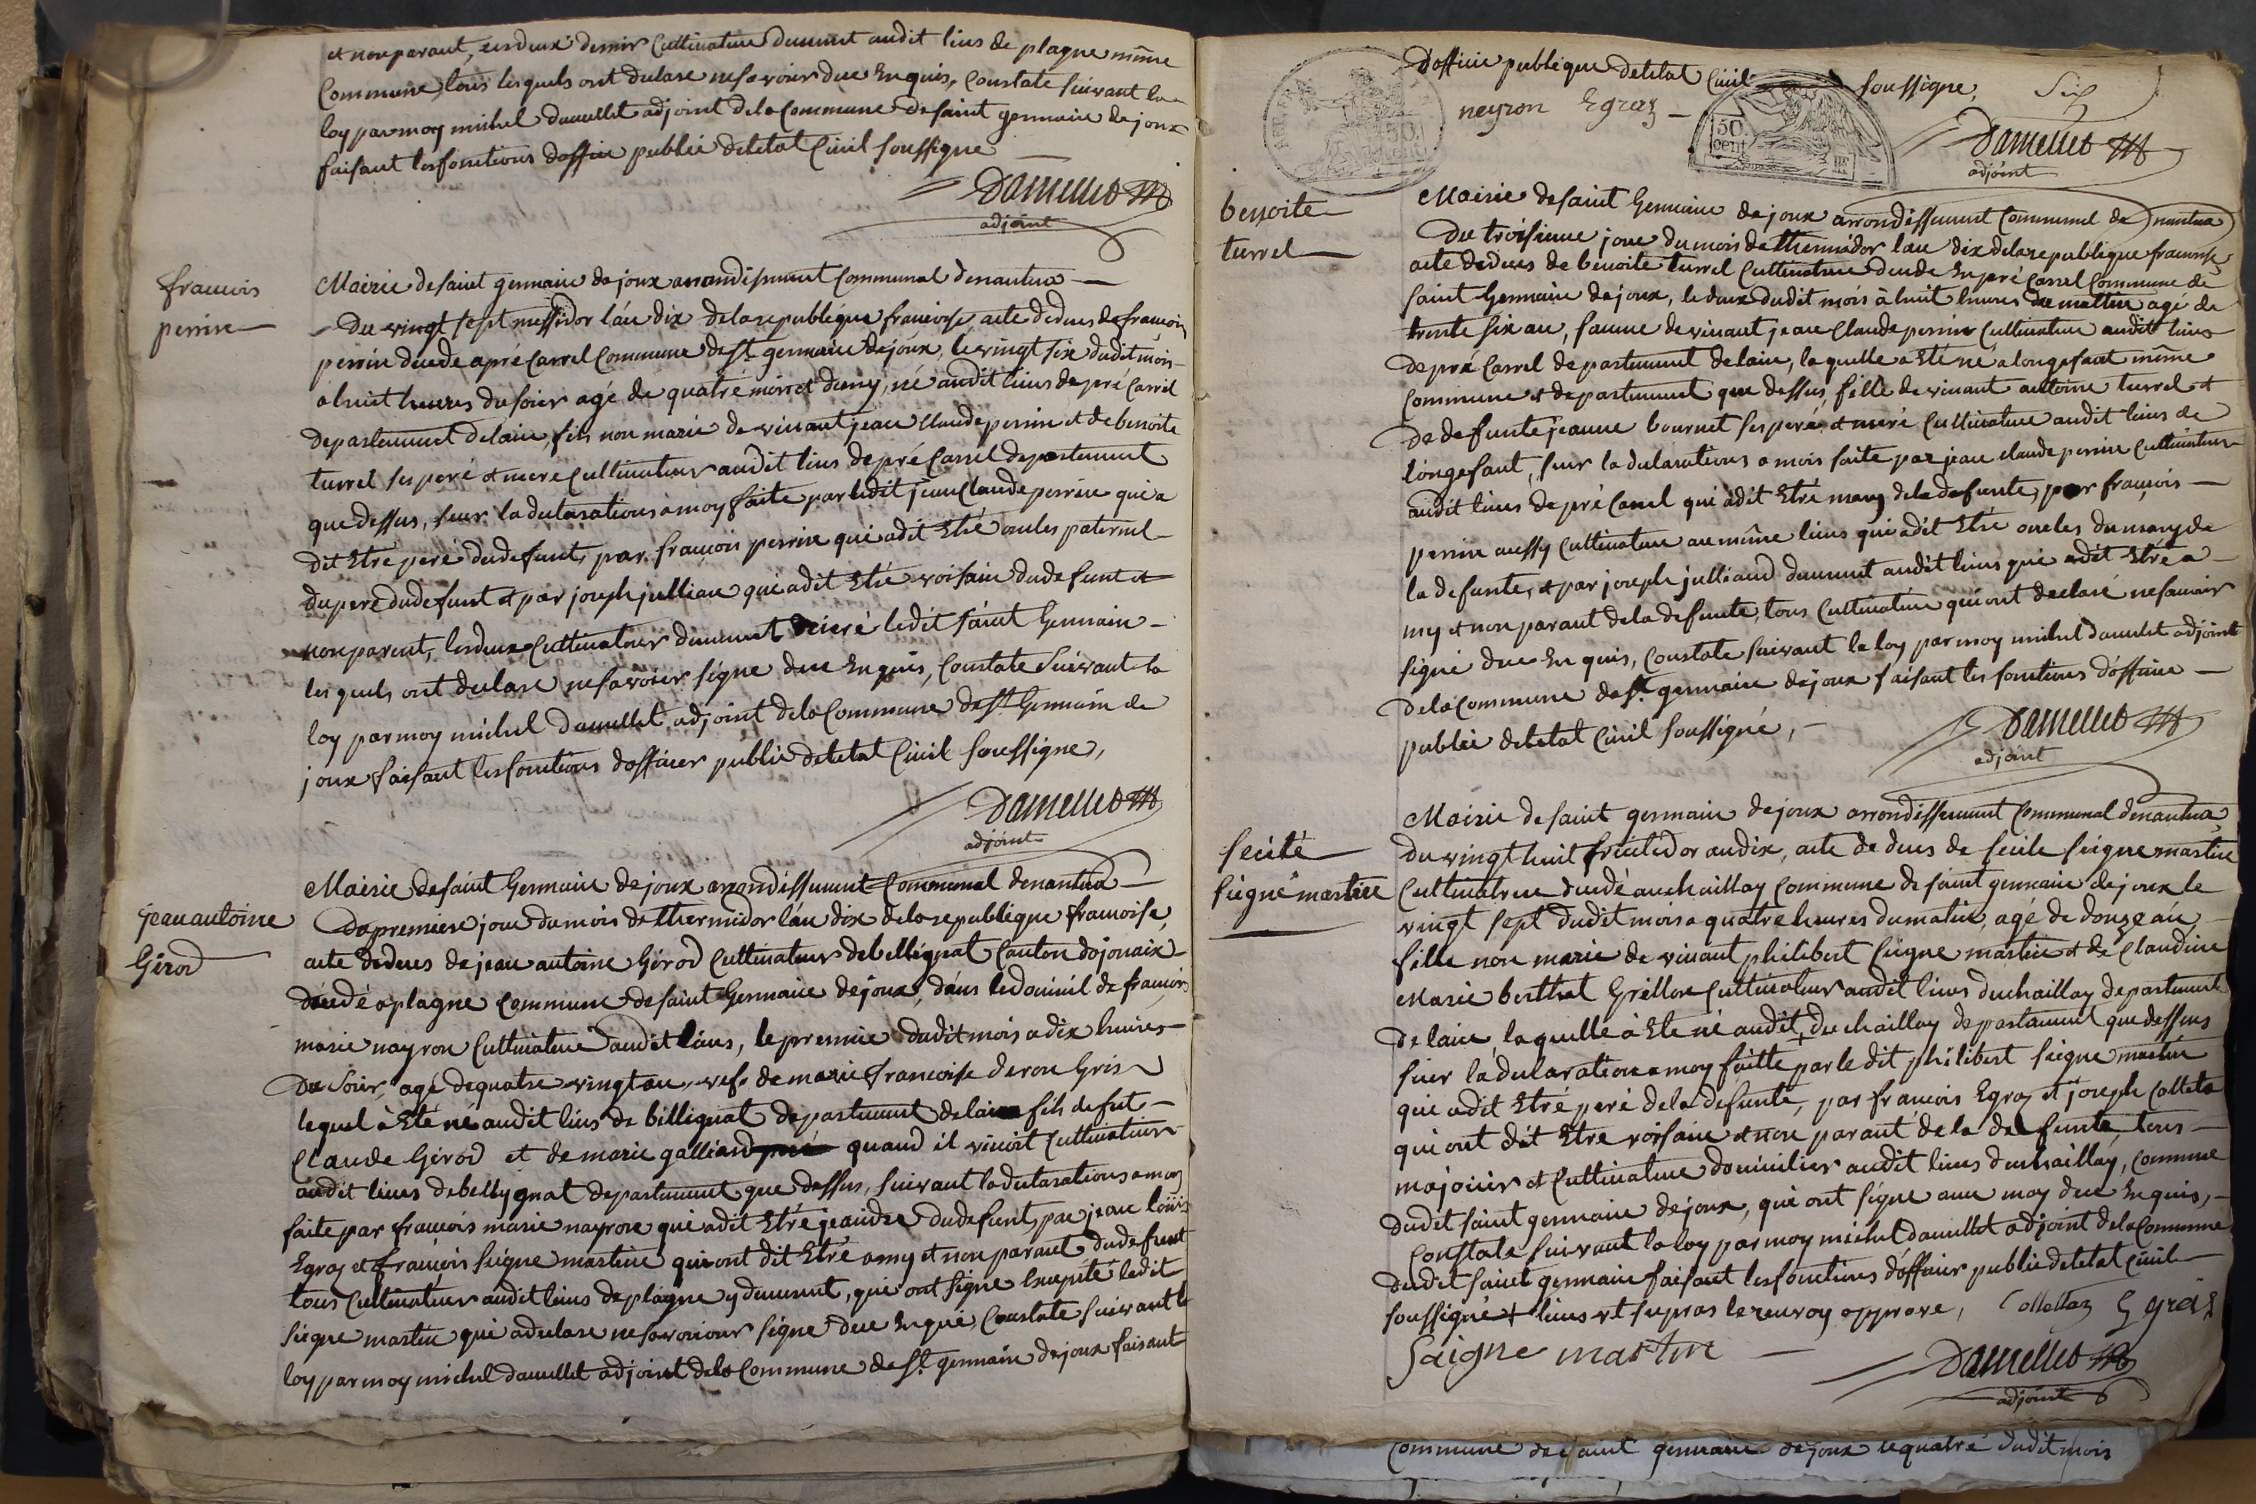 et non parant, les deux dernier Cultivateur demeurt audit lieus de plagne même
Commune, tous lesquels ont declare ne savoir due Enquis, Constate suivant la
loy par moy michel Damellet adjoint de la Commune de saint germain de joux
faisant les fonctions doffice publié de letat Civil soussigne
Damellet
adjoint
francois
perrin
Mairie de saint germain de joux arrondisement Communal denantua
Du vingt sept messidor l'an dix de la republique francoise, acte de deces de francois
perrin decede a pré Carrel Commune de St. germain dejoux, le vingt six dudit mois
a huit heures du soir agé de quatré mois et demy, né audit lieus de pré Carrel
departement delain, fils non marié de vivant jean Claude perrin et de benoite
turrel ses peré et mere Cultivateur audit lieus de pré Carrel departement
que dessus, sur la declarations a moy faite par ledit jean Claude perrin qui a
dit Etré peré dudefunt, par francois perrin qui adit Etré oncles paternel
du peré dudefunt et par joseph julliau qui adit Etré voisain dudefunt et
non parent, les deux Cultivateur demeurt riere ledit saint Germain
les quels ont declare ne savoir signe due Enquis, Constate suivant la
loy par moy michel Damellet adjoint dela Commune de St. Germain de
joux faisant les fonctions d'officier public detetat Civil soussigne,
Damellet
adjoint
jean antoine
Girod
Mairie desaint Germain dejoux arrondissement Communal denantua
Du premiere jour du mois de thermidor l'an dix dela republique francoise,
acte dedeces de jean antoine Girod Cultivateur debellignat Canton dojonaix
décédé a plagne Commune de saint Germain dejoux, dans ledomicil de francois
marie nayron Cultivateur audit lieus, le premier dudit mois a dix heures
Du soir, agé de quatre vingt an, vef de marie francoise deron Gris
lequel à Eté né audit lieus de billignat departement delain fils defut
Claude Girod et de marie galliand quand il vivoit Cultivateur
audit lieus debellygnat departement que dessus, suivant la declarations a moy
faite par francois marie nayron qui adit Etré jeandre dudefunt, par jean louis
Egraz et francois seigne martin qui ont dit Etré amy et non parant dudefunt
tous Cultivateur audit lieus de plagne y demeurt, qui ont signe Excepté ledit
seigne martin qui a declare ne savoir signe due Enqué, Constate suivant la
loy par moy michel damellet adjoint dela Commune de St. germain dejoux faisant
doffice publique detetat Civil soussigne,
neyron Egraz
50 cent
Damellet
adjoint
benoite
turrel
Mairie desaint Germain dejoux arrondissement Communal de nantua
Du troisieme jour du mois de thermidor l'an dix dela republique francoise,
acte dedeces de benoite turrel Cultivatrice decede En pré Carrel Commune de
saint Germain dejoux, le deux dudit mois à huit heures du mattin agé de
trente six an, famme devivant jean Claude perrin Cultivateur audit lieus
de pré Carrel departement delain, la quelle a Eté né a longefant même
Commune et departement que dessus, fille de vivant antoine turrel et
de defunte jeanne bournet ses peré et meré Cultivateur audit lieus de
longefant, sur la declarations a mois faite par jean claude perrin Cultivateur
audit lieus de pré Carrel qui adit Etré mary dela defunte, par francois
perrin aussy Cultivateur au même lieus qui adit Etré oncles du mary de
la defunte, et par joseph julliand demeurt audit lieus qui adit Etré a
my et non parant dela defunte, tous Cultivateur qui ont declaré ne savoir
signé due Enquis, Constate suivant la loy par moy michel damellet adjoint
dela Commune de St. germain dejoux faisant les fonctions d'officie
publié detetat Civil soussigné,
Damellet
adjoint
secile
seigne martin
Mairie de saint germain dejoux arrondissement Communal denantua,
Du vingt huit fructidor an dix, acte de deces de secile seigne martin
Cultivatrice decedé auchaillay Commune de saint germain dejoux le
vingt sept dudit mois a quatre heures dumatin, agé de douze an,
fille non marié de vivant philibert seigne martin et de Claudine
Marie berthet Grillon Cultivateur audit lieus duchaillay departement
de lain, laquelle à Eté né audit + du chaillay departement que dessus
suer la declaration a moy faitte par le dit philibert seigne martin
qui adit Etre peré dela defunte, par francois Egraz et joseph Collet
qui ont dit Etre voisain et non parant de la defunte, tous
majeur et Cultivateur domicilier audit lieus duchaillay, Commune
dudit saint germain dejoux, qui ont signe avec moy due Enquis,
Constate suivant la loy par moy michel damellet adjoint dela Commune
dudit saint germain faisant les fonctions d'officier publié detetat Civil
soussigné + lieus ut supras le renvoy approve, Collettaz Egraz
Saigne martin
Damellet
adjoint
Commune de saint germain dejoux le quatre dudit mois